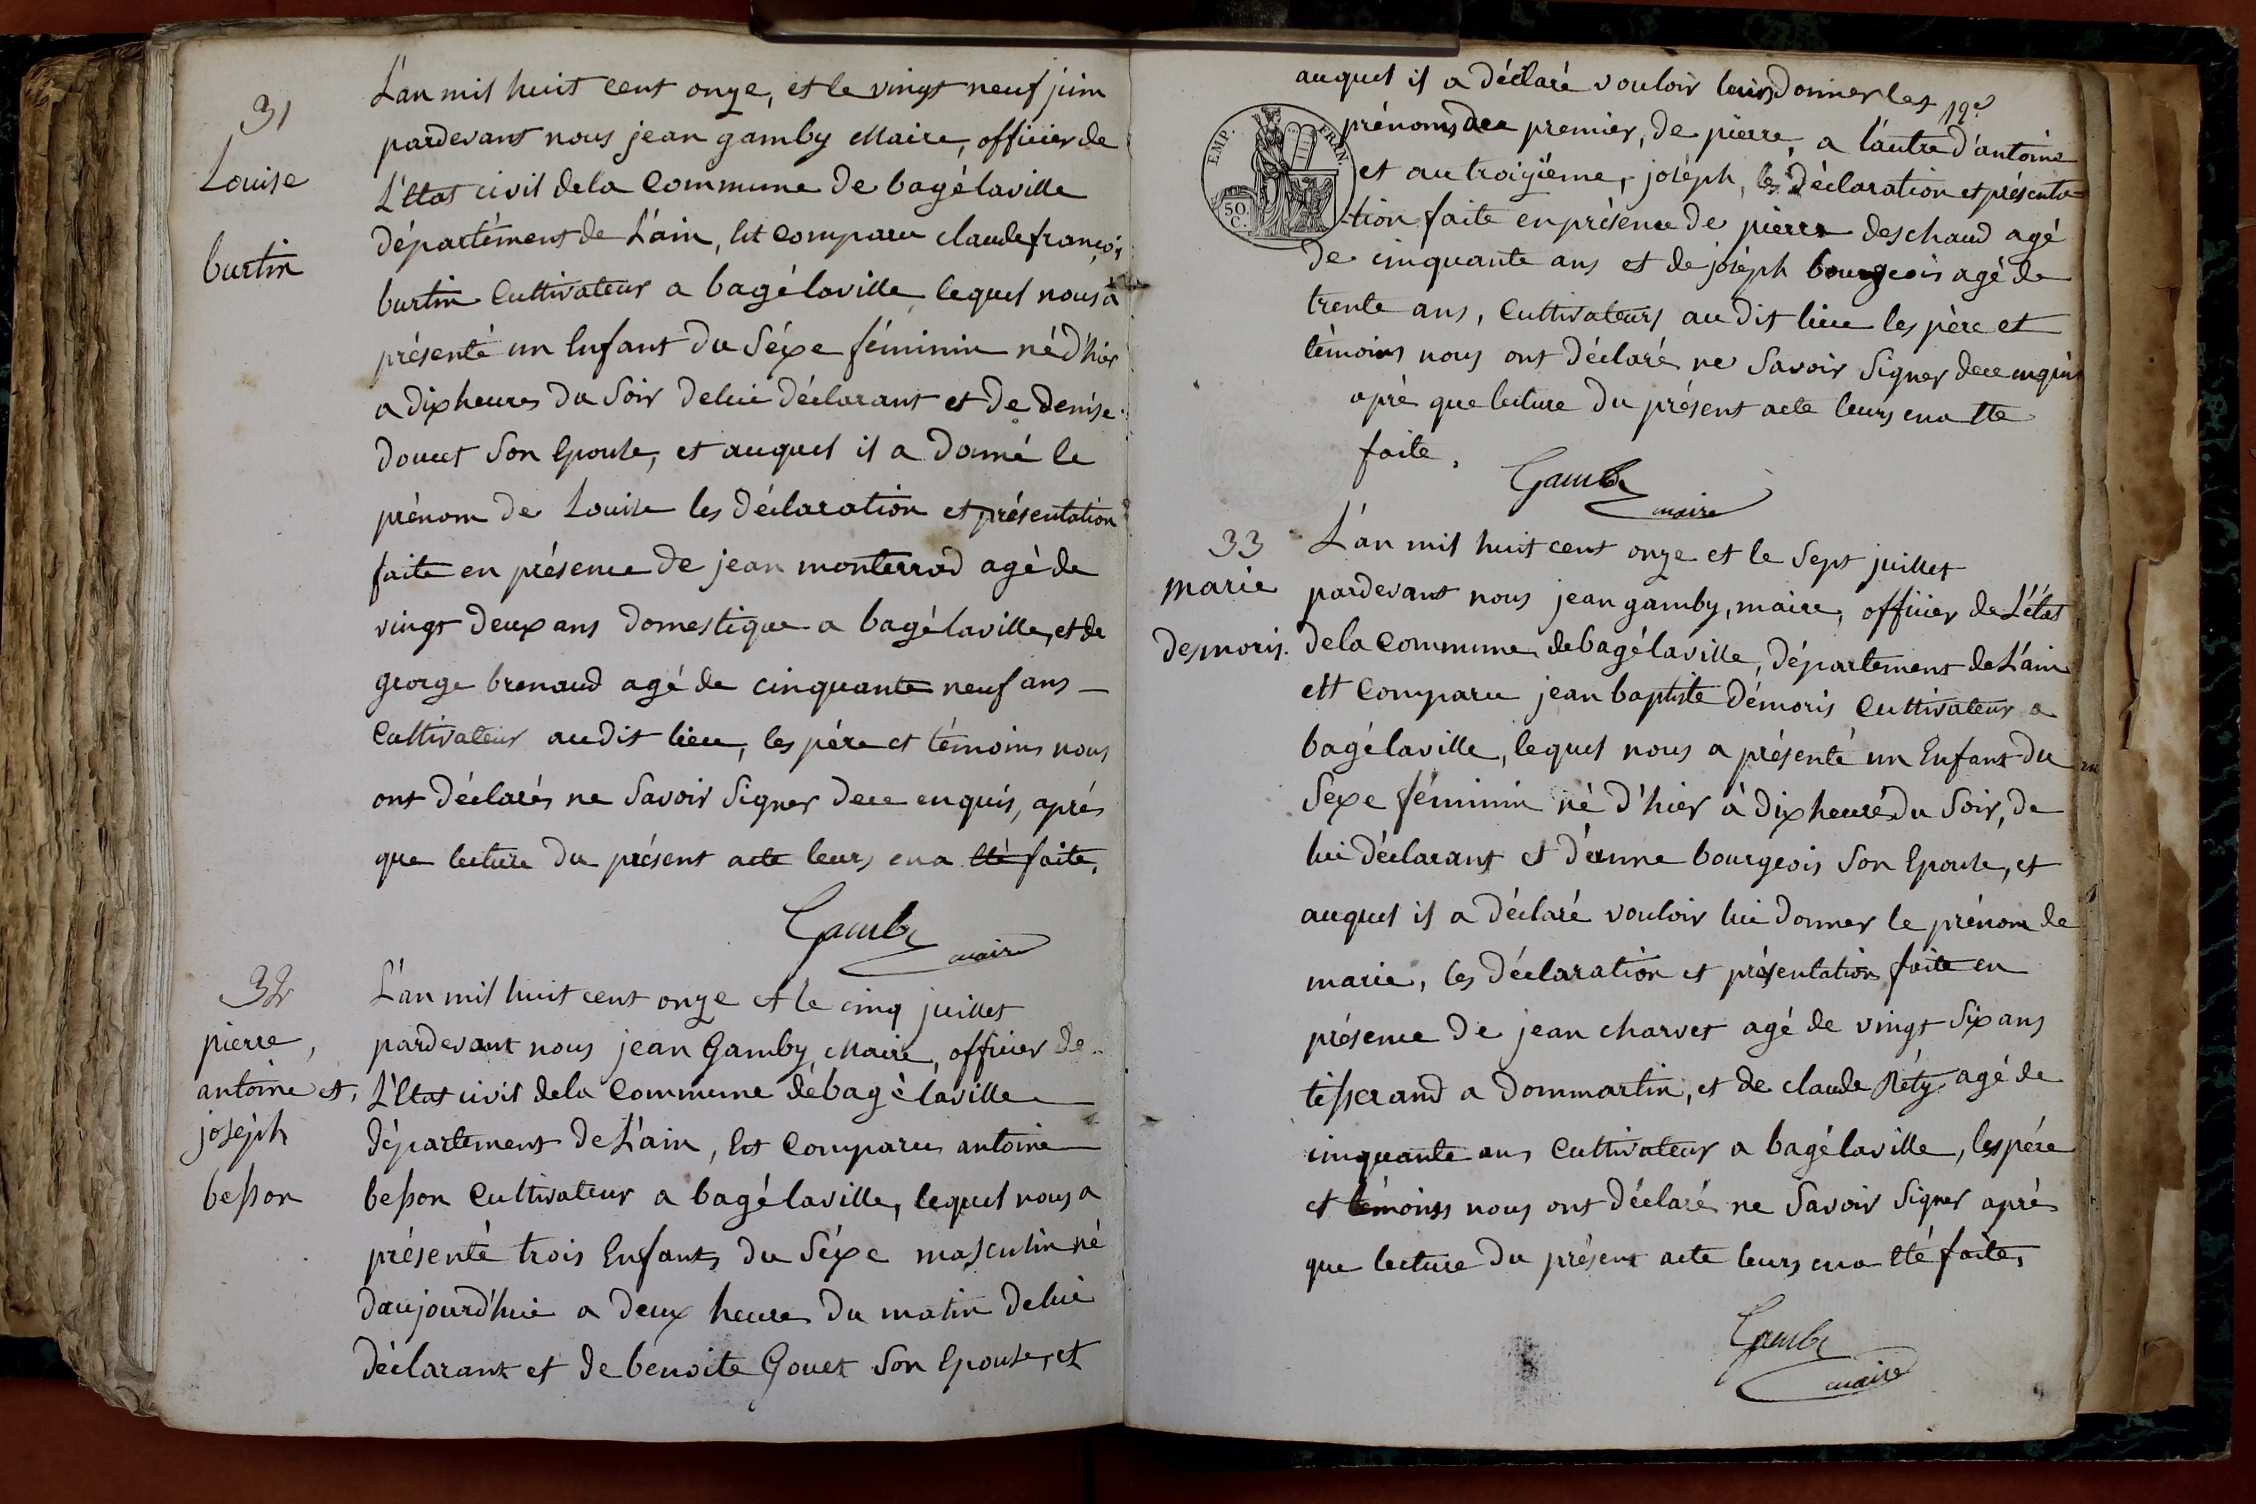 31
Louise
burtin
L'an mil huit cent onze, et le vingt neuf juin
pardevant nous jean gamby Maire, officier de
L'Etat civil dela Commune de bagélaville
département de L'ain, Est Comparu claude françois
burtin Cultivateur a bagélaville lequel nous à
présenté un Enfant du Séxe féminin né d'hier
a dix heures du Soir delui déclarant et de denise
doucet Son Epouse, et auquel il a donné le
prénom de Louise les déclaration et présentation
faite en présence de jean monterrad agé de
vingt deux ans domestique a bagélaville, et de
george brenaud agé de cinquante neuf ans
Cultivateur audit lieu, les pére et témoins nous
ont déclarés ne Savoir Signer dece enquis, aprés
que lecture du présent acte leurs ena été faite.
Gamby
maire
32
pierre,
antoine et,
joséph
besson
L'an mil huit cent onze et le cinq juillet
pardevant nous jean Gamby Maire, officier de
L'Etat civil dela Commune debagélaville
département de L'ain, Est Comparus antoine
besson Cultivateur a bagélaville, lequel nous a
présenté trois Enfants du Séxe masculin né
daujourd'hui a deux heures du matin de lui
déclarant et de benoite Gouet Son Epouse, et
19e
auquel il a déclaré vouloir leurs donner les
prénoms au premier, de pierre, a l'autre d'antoine
et au troizième, joséph, les déclaration et présenta=
-tion faite enprésence de pierre deschaud agé
de cinquante ans et de joséph bourgeois agé de
trente ans, Cultivateurs audit lieu les père et
témoins nous ont déclaré ne Savoir Signer dece enquis
aprè que lecture du présent acte leurs ena Ete
faite,
EMP. FRAN.
50. C.
Gamby
maire
33
marie
desmoris.
L'an mil huit cent onze et le Sept juillet
pardevant nous jean gamby, maire, officier de L'état
dela Commune debagélaville, département de L'ain
est Comparu jean baptiste démoris Cultivateur a
bagélaville, lequel nous a présenté un Enfant du
Sexe féminin né d'hier à dix heures du Soir, de
lui déclarant et d'anne bourgeois Son Epouse, et
auquel il a déclaré vouloir lui donner le prénom de
marie, les déclaration et présentation faite en
présence de jean charvet agé de vingt Six ans
tisserand a dommartin, et de claude Réty agé de
cinquante ans Cultivateur a bagélaville, les pére
et témoins nous ont déclaré ne Savoir Signer aprés
que lecture du présent acte leurs ena Eté faite,
Gamby
maire